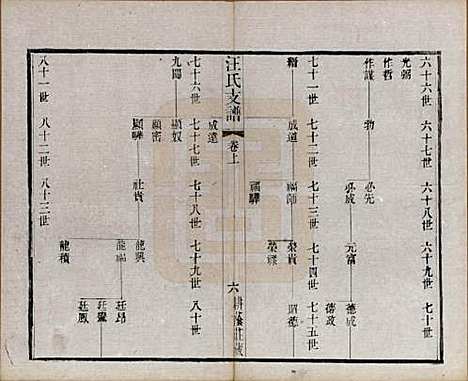 六十六世 六十七世 六十八世 六十九世 七十世
光弼
作哲
作謀 勃 必先
必成 元富 德成
德政
七十一世 七十二世 七十三世 七十四世 七十五世
成遠 福師 榮貴 昭德
榮祿
福驊
汪氏支譜 卷上 六
成遠
七十六世 七十七世 七十八世 七十九世 八十世
九閣 顯奴
顯密
顯驊 社貴 龍興
龍福 廷昂
廷鸞
龍積 廷鳳
八十一世 八十二世 八十三世